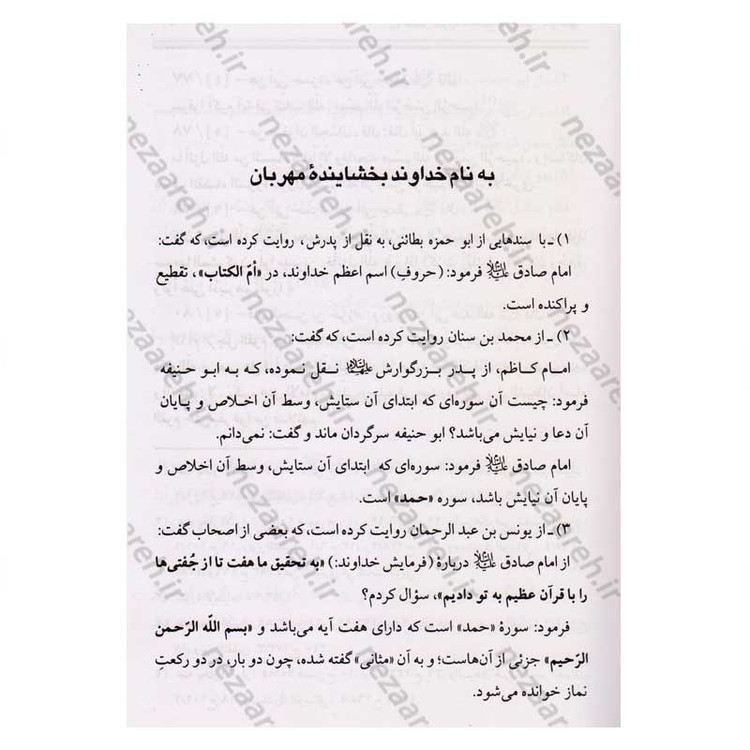 به نام خداوند بخشایندهٔ مهربان
۱) ـ با سندهایی از ابو حمزه بطائنی، به نقل از پدرش، روایت کرده است، که گفت:
امام صادق علیه‌السلام فرمود: (حروفِ) اسم اعظم خداوند، در «اُمّ الکتاب»، تقطیع
و پراکنده است.
۲) ـ از محمد بن سنان روایت کرده است، که گفت:
امام کاظم، از پدر بزرگوارش علیهما‌السلام نقل نموده، که به ابو حنیفه
فرمود: چیست آن سوره‌ای که ابتدای آن ستایش، وسط آن اخلاص و پایان
آن دعا و نیایش می‌باشد؟ ابو حنیفه سرگردان ماند و گفت: نمی‌دانم.
امام صادق علیه‌السلام فرمود: سوره‌ای که ابتدای آن ستایش، وسط آن اخلاص و
پایان آن نیایش باشد، سوره «حمد» است.
۳) ـ از یونس بن عبد الرحمان روایت کرده است، که بعضی از اصحاب گفت:
از امام صادق علیه‌السلام دربارهٔ (فرمایش خداوند:) «به تحقیق ما هفت تا از جُفتی‌ها
را با قرآن عظیم به تو دادیم»، سؤال کردم؟
فرمود: سورهٔ «حمد» است که دارای هفت آیه می‌باشد و «بسم اللّه الرّحمن
الرّحیم» جزئی از آن‌هاست؛ و به آن «مثانی» گفته شده، چون دو بار، در دو رکعتِ
نماز خوانده می‌شود.
nezaareh.ir